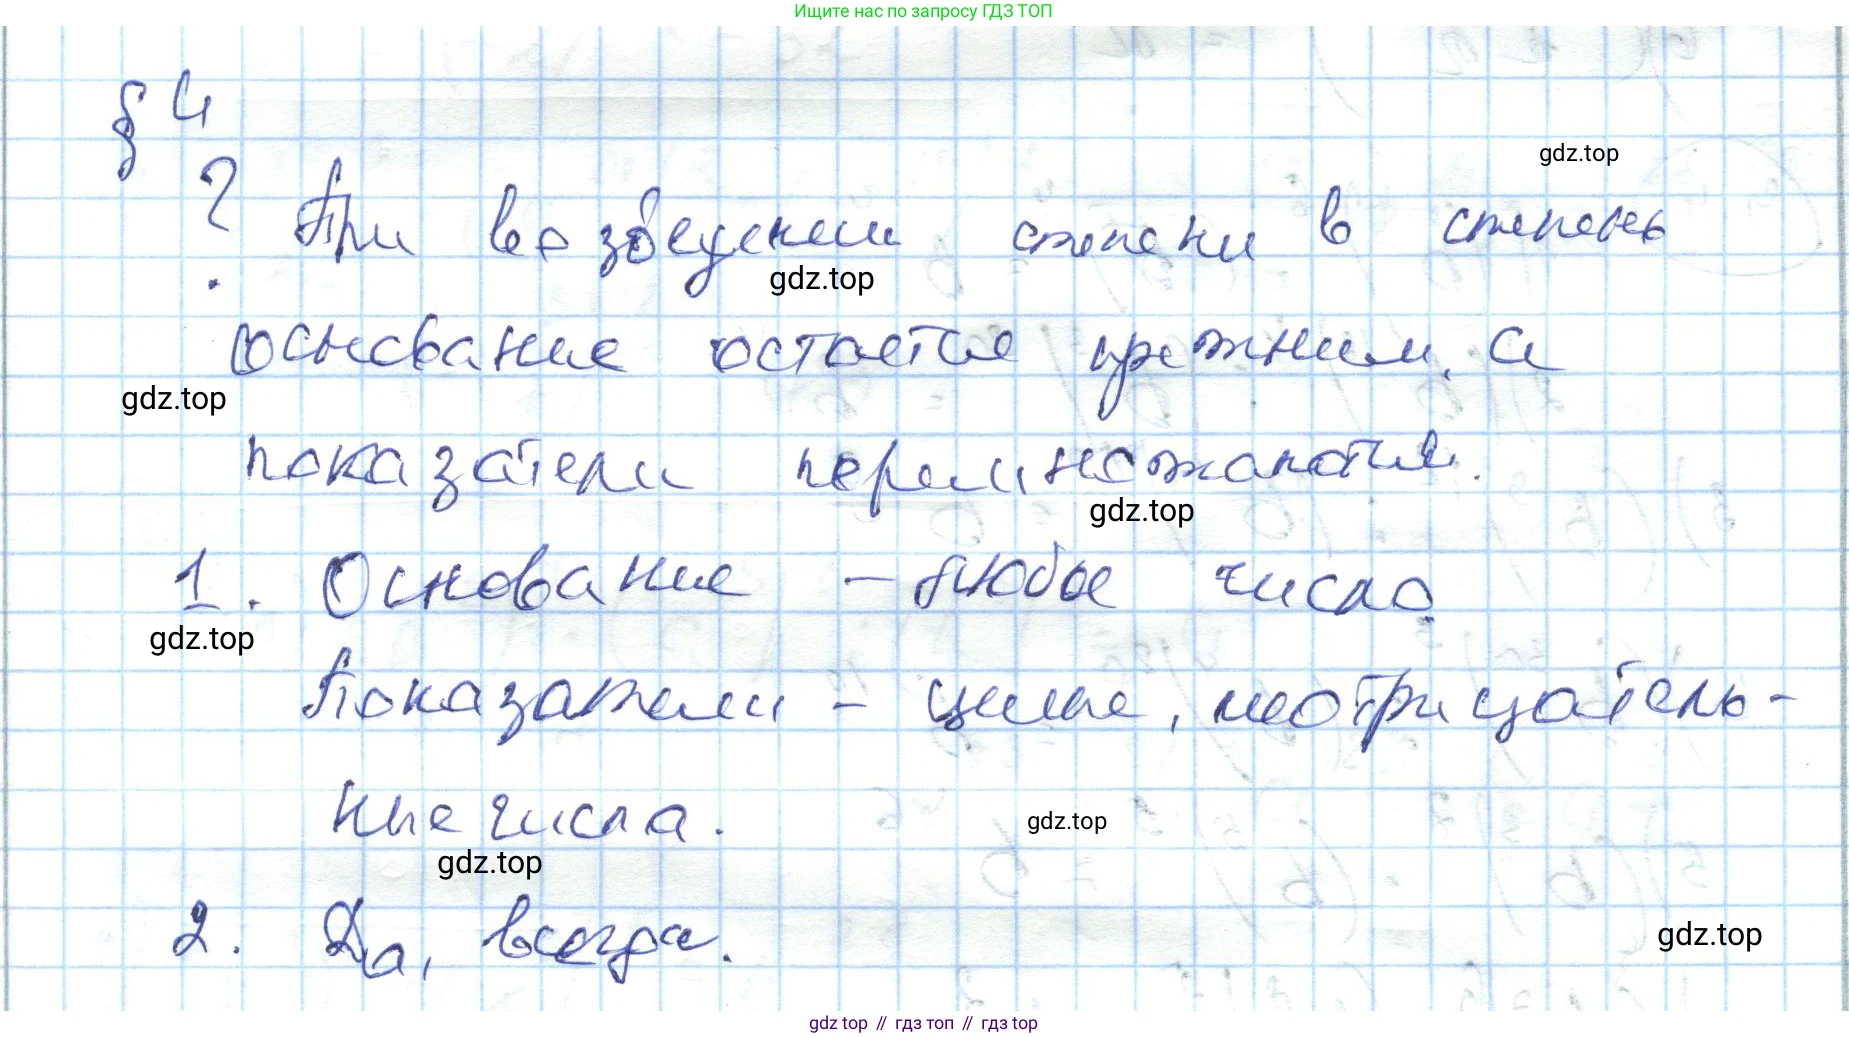 Ищите нас по запросу ГДЗ ТОП
§ 4
gdz.top
? При возведении степени в степень
gdz.top
основание остается прежним, а
gdz.top
показатели перемножаются.
gdz.top
1. Основание – любое число.
gdz.top
Показатели – целые, неотрицатель-
ные числа.
gdz.top
gdz.top
2. Да, всегда.
gdz.top
gdz top // гдз топ // gdz top